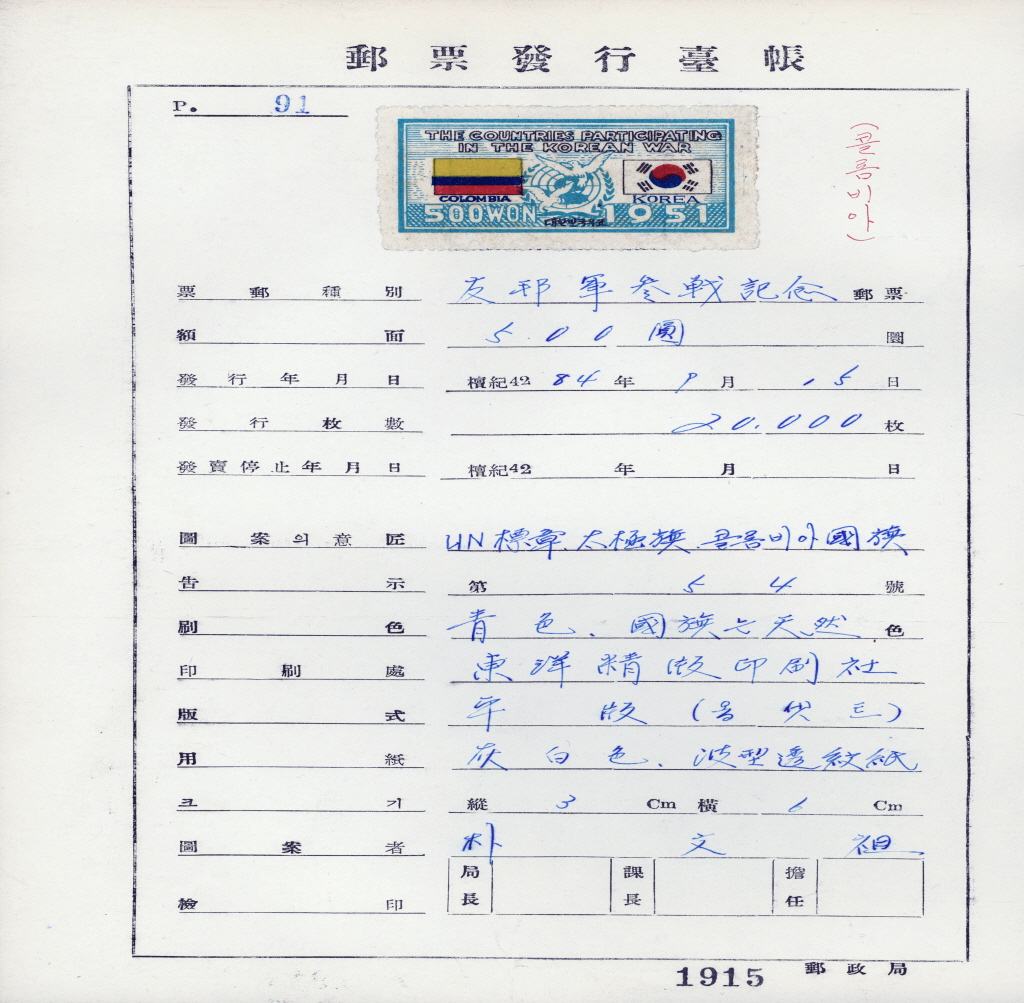 郵票發行臺帳
P. 91
THE COUNTRIES PARTICIPATING
IN THE KOREAN WAR
COLOMBIA KOREA
500WON 1951
(콜롬비아)
票郵種別 友邦軍參戰記念 郵票
額面 500圓 圜
發行年月日 檀紀4284年 9月 15日
發行枚數 20.000枚
發賣停止年月日 檀紀42 年 月 日
圖案의意匠 UN標章.太極旗.콜롬비아國旗
告示 第54號
刷色 青色.國旗는天然色
印刷處 東洋精版印刷社
版式 平版(옵셋트)
用紙 灰白色.波型透紋紙
크기 縱 3 Cm 橫 6 Cm
圖案者 朴文祖
檢印 局長 課長 擔任
1915 郵政局